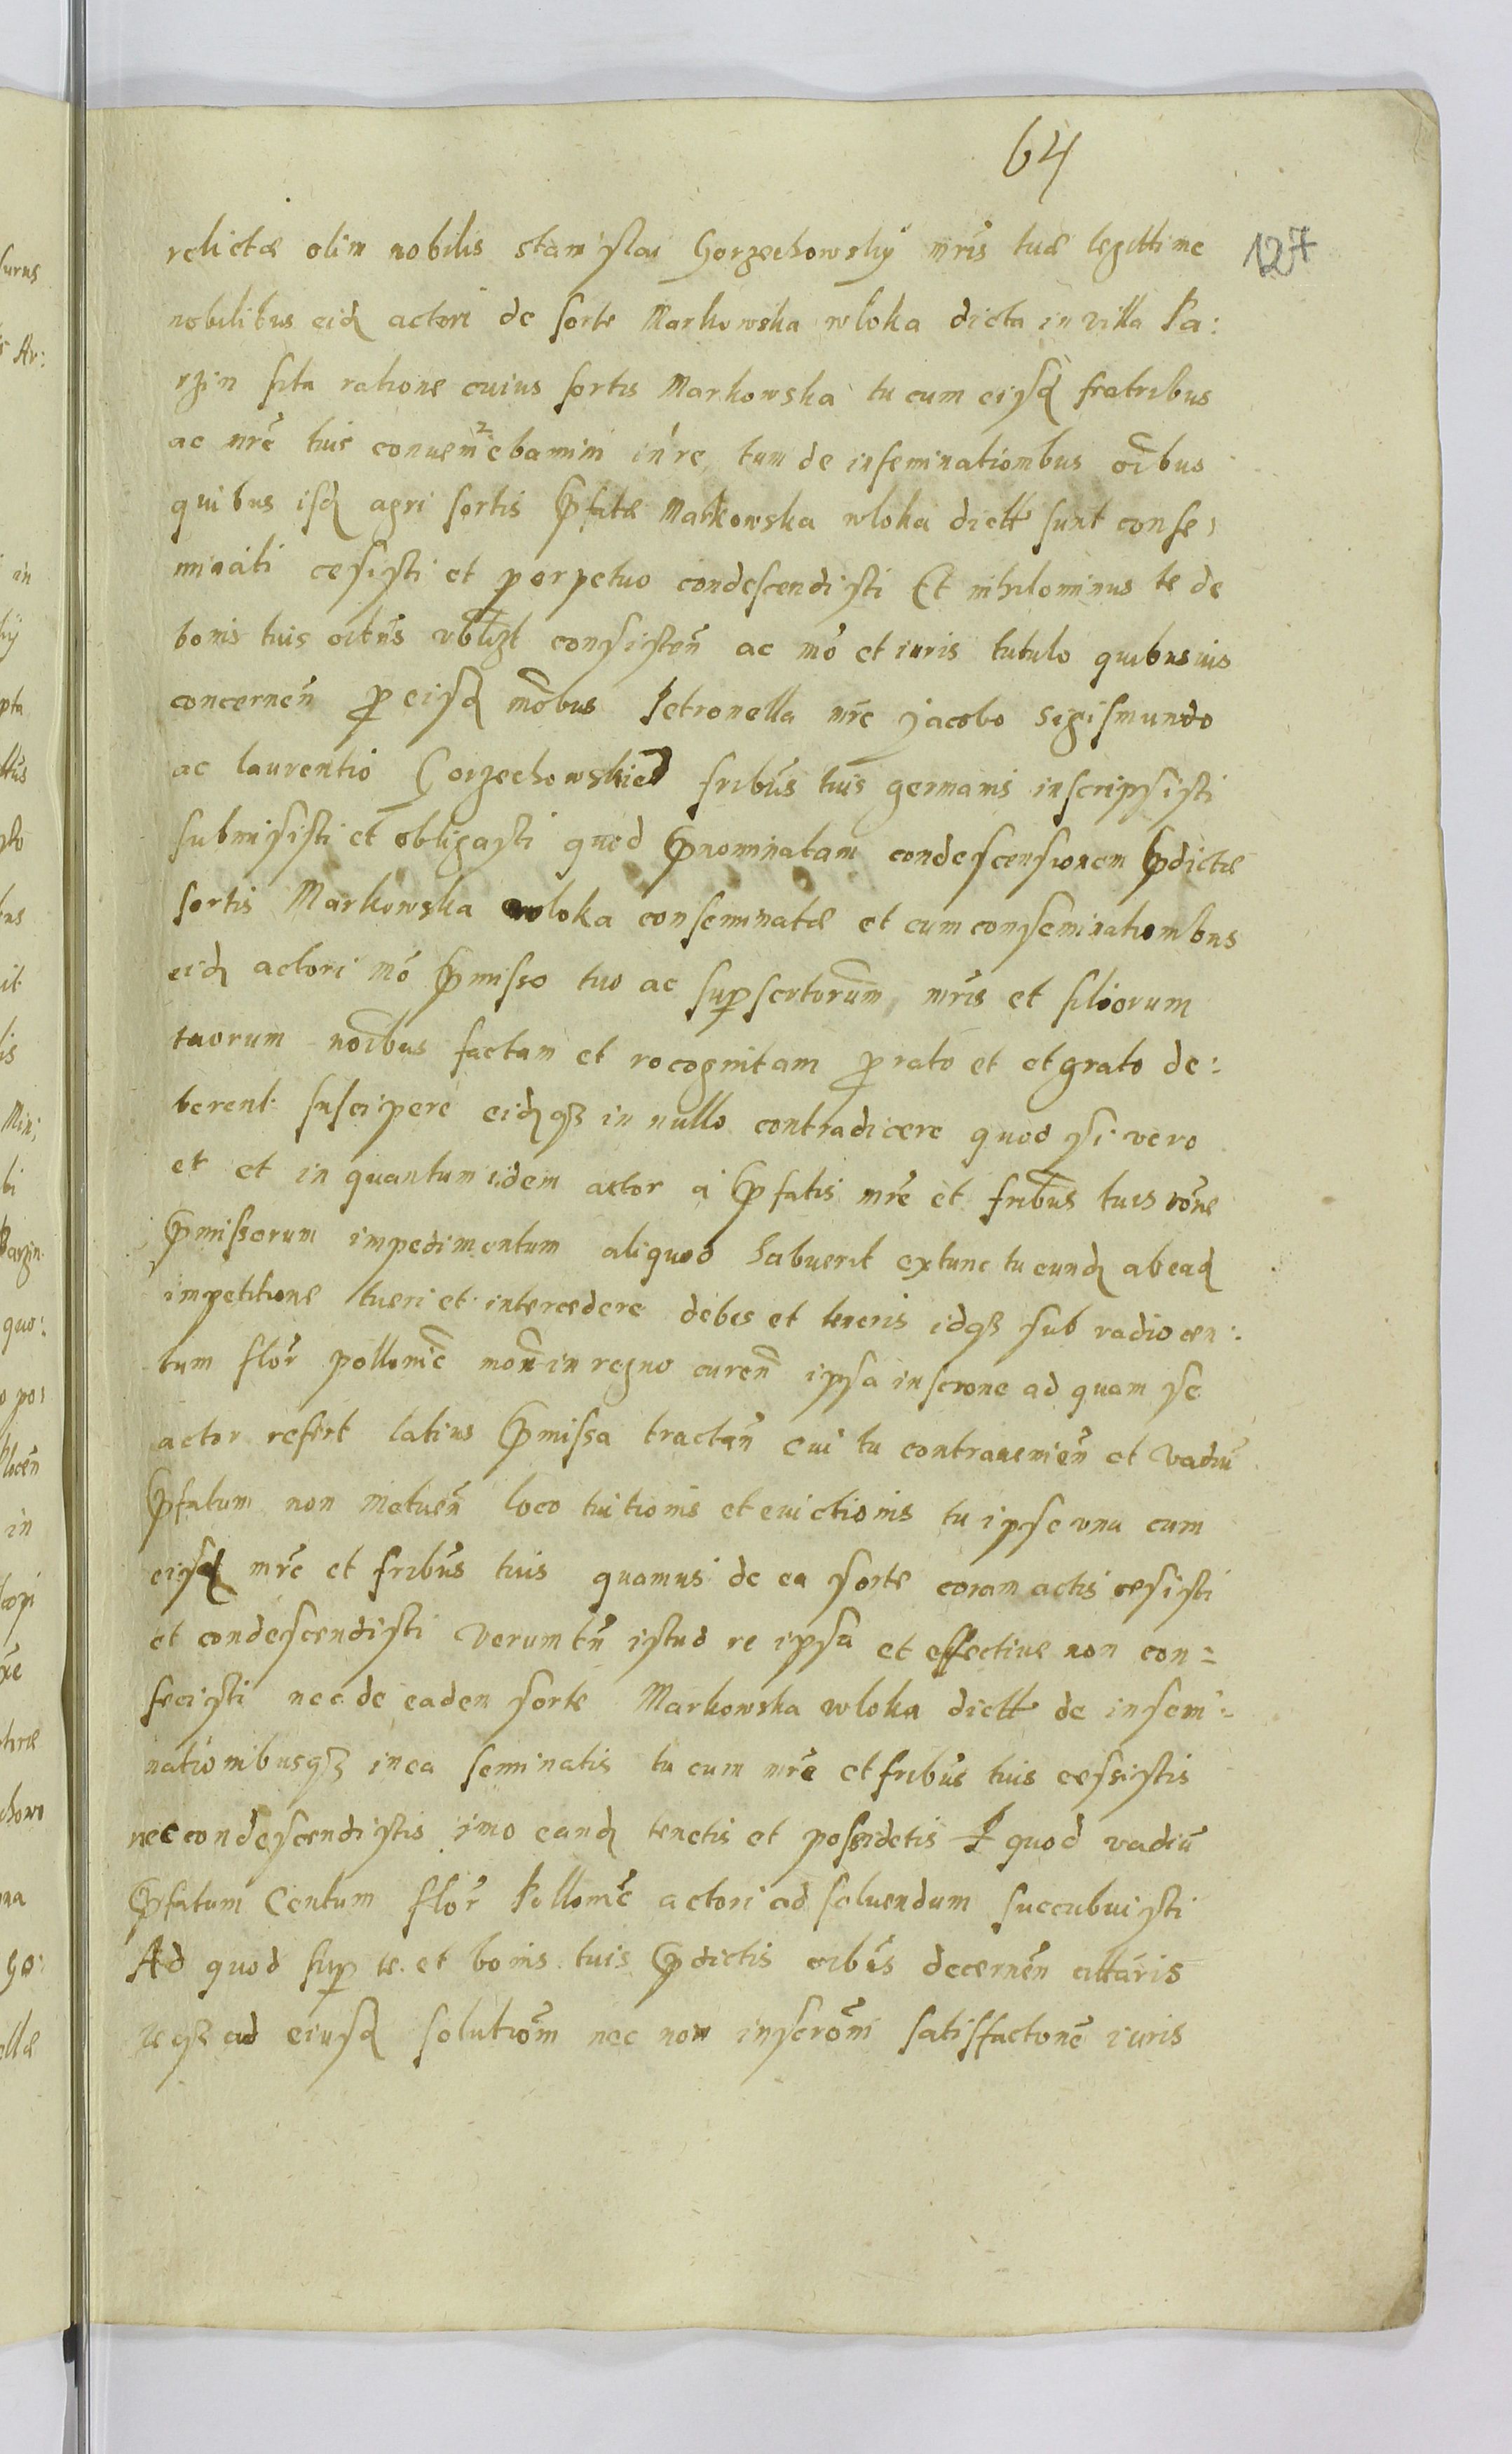 64
127
relictæ olim nobilis stanislai Gorzechowsky mris tuæ legittime
nobilibus eid actori de sorte Markowska wloka dicta in villa Pa:
rzin sita ratione cuius sortis Markowska tu cum eisd fratribus
ac mre tuis conueniebamini in re, tum de inseminationibus oibus
quibus isd agri sortis pfatæ Markowska wloka dictt sunt conse,
minati cesisti et perpetuo condescendisti Et nihilominus te de
bonis tuis oibus vbilizt consisten ac mo et iuris tutulo quibusuis
concernen p eisd noibus Petronella mre jacobo sigismundo
ac laurentio Gorzechowskie fribus tuis germanis inscripsisti
submisisti et obligasti quod pnominatam condescensionem pdictæ
sortis Markowska wloka conseminatæ et cum conseminationibus
eid actori mo pmisso tuo ac supsertorum, mris et filiorum
tuorum noibus factam et recognitam p rato et et grato de:
berent suscipere eidqz in nullo contradicere quod si vero
et et in quantum idem actor a pfatis mre et fribus tuis rone
pmissorum impedimentum aliquod habuerit extunc tu eund ab ead
impetitione tueri et intercedere debes et teneris idqz sub vadio cen:
tum flor pollonic mon in regno curen ipsa inscrone ad quam se
actor refert latius pmissa tractan cui tu contrauenien et vadiu
pfatum non metuen loco tuitionis et euictionis tu ipse vna cum
eisd mre et fribus tuis quamuis de ea sorte coram actis cesisti
et condescendisti verumtn istud re ipsa et effectiue non con=
fecisti nec de eadem sorte Markowska wloka dictt de insemi=
nationibusqz in ea seminatis tu cum mre et fribus tuis cessistis
nec condescendistis imo eand tenetis et possidetis P quod vadiu
pfatum Centum flor Pollonic actori ad soluendum succubuisti
Ad quod sup te et bonis tuis pdictis oibus decernen cittaris
teqz ad eiusd solutiom nec non inscroni satisfactone iuris